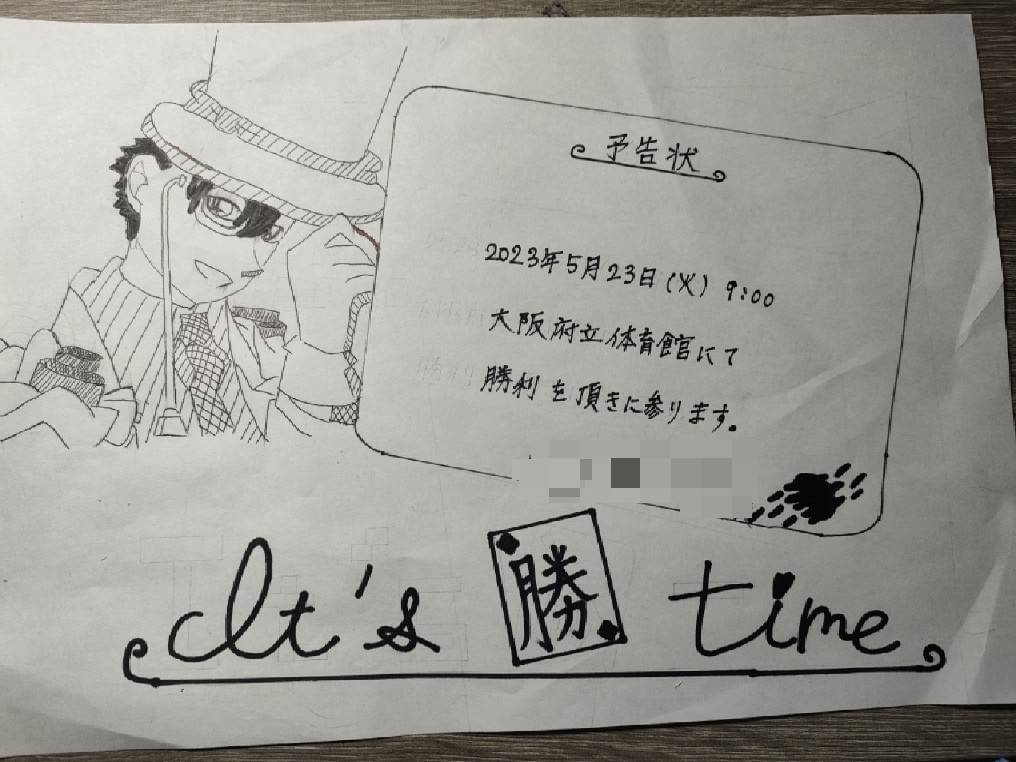 予告状
2023年5月23日(火) 9:00
大阪府立体育館にて
勝利を頂きに参ります。
It's 勝 time